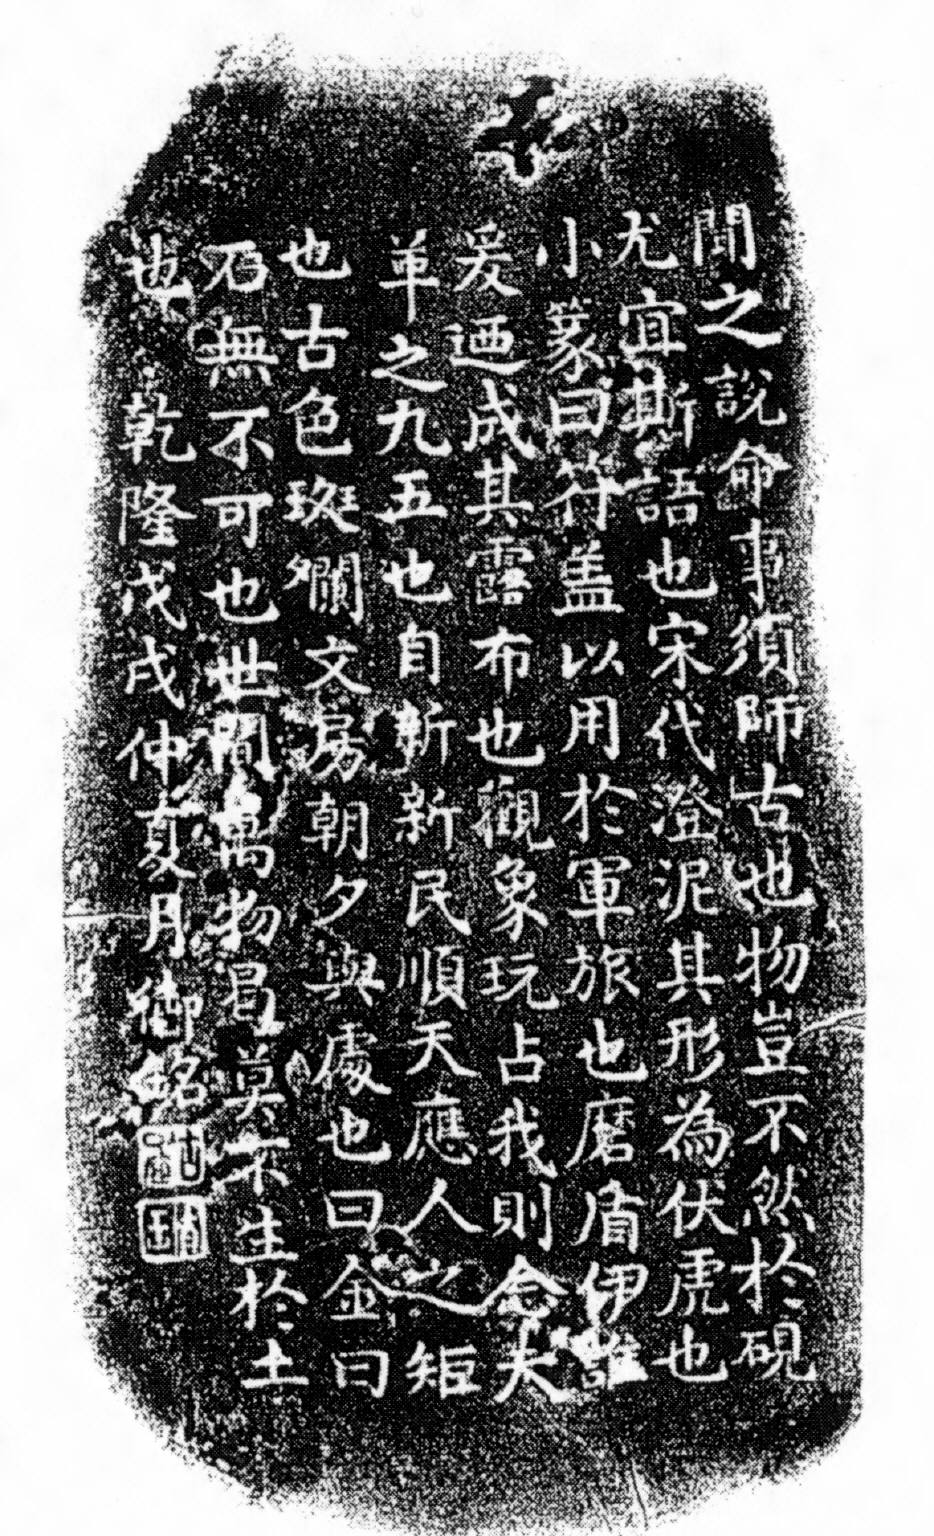 聞之說命事須師古也物豈不然於硯
尤宜斯語也宋代澄泥其形為伏虎也
小篆曰符盖以用於軍旅也磨盾伊誰
爰迺成其露布也觀象玩占我則合大
革之九五也自新新民順天應人之矩
也古色斑斕文房朝夕與處也曰金曰
石無不可也世間萬物曷莫不生於土
也乾隆戊戌仲夏月御銘